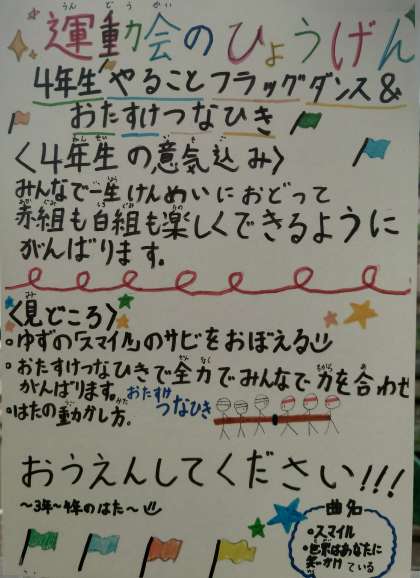 運動会のひょうげん
4年生 やること フラッグダンス&
おたすけつなひき
〈4年生の意気込み〉
みんなで一生けんめいにおどって
赤組も白組も楽しくできるように
がんばります。
〈見どころ〉
・ゆずの「スマイル」のサビをおぼえる
・おたすけつなひきで全力でみんなで力を合わせ
がんばります。
・はたの動かし方。
おたすけ
つなひき
おうえんしてください!!!
〜3年〜4年のはた〜
曲名
・スマイル
・世界はあなたに
笑いかけている